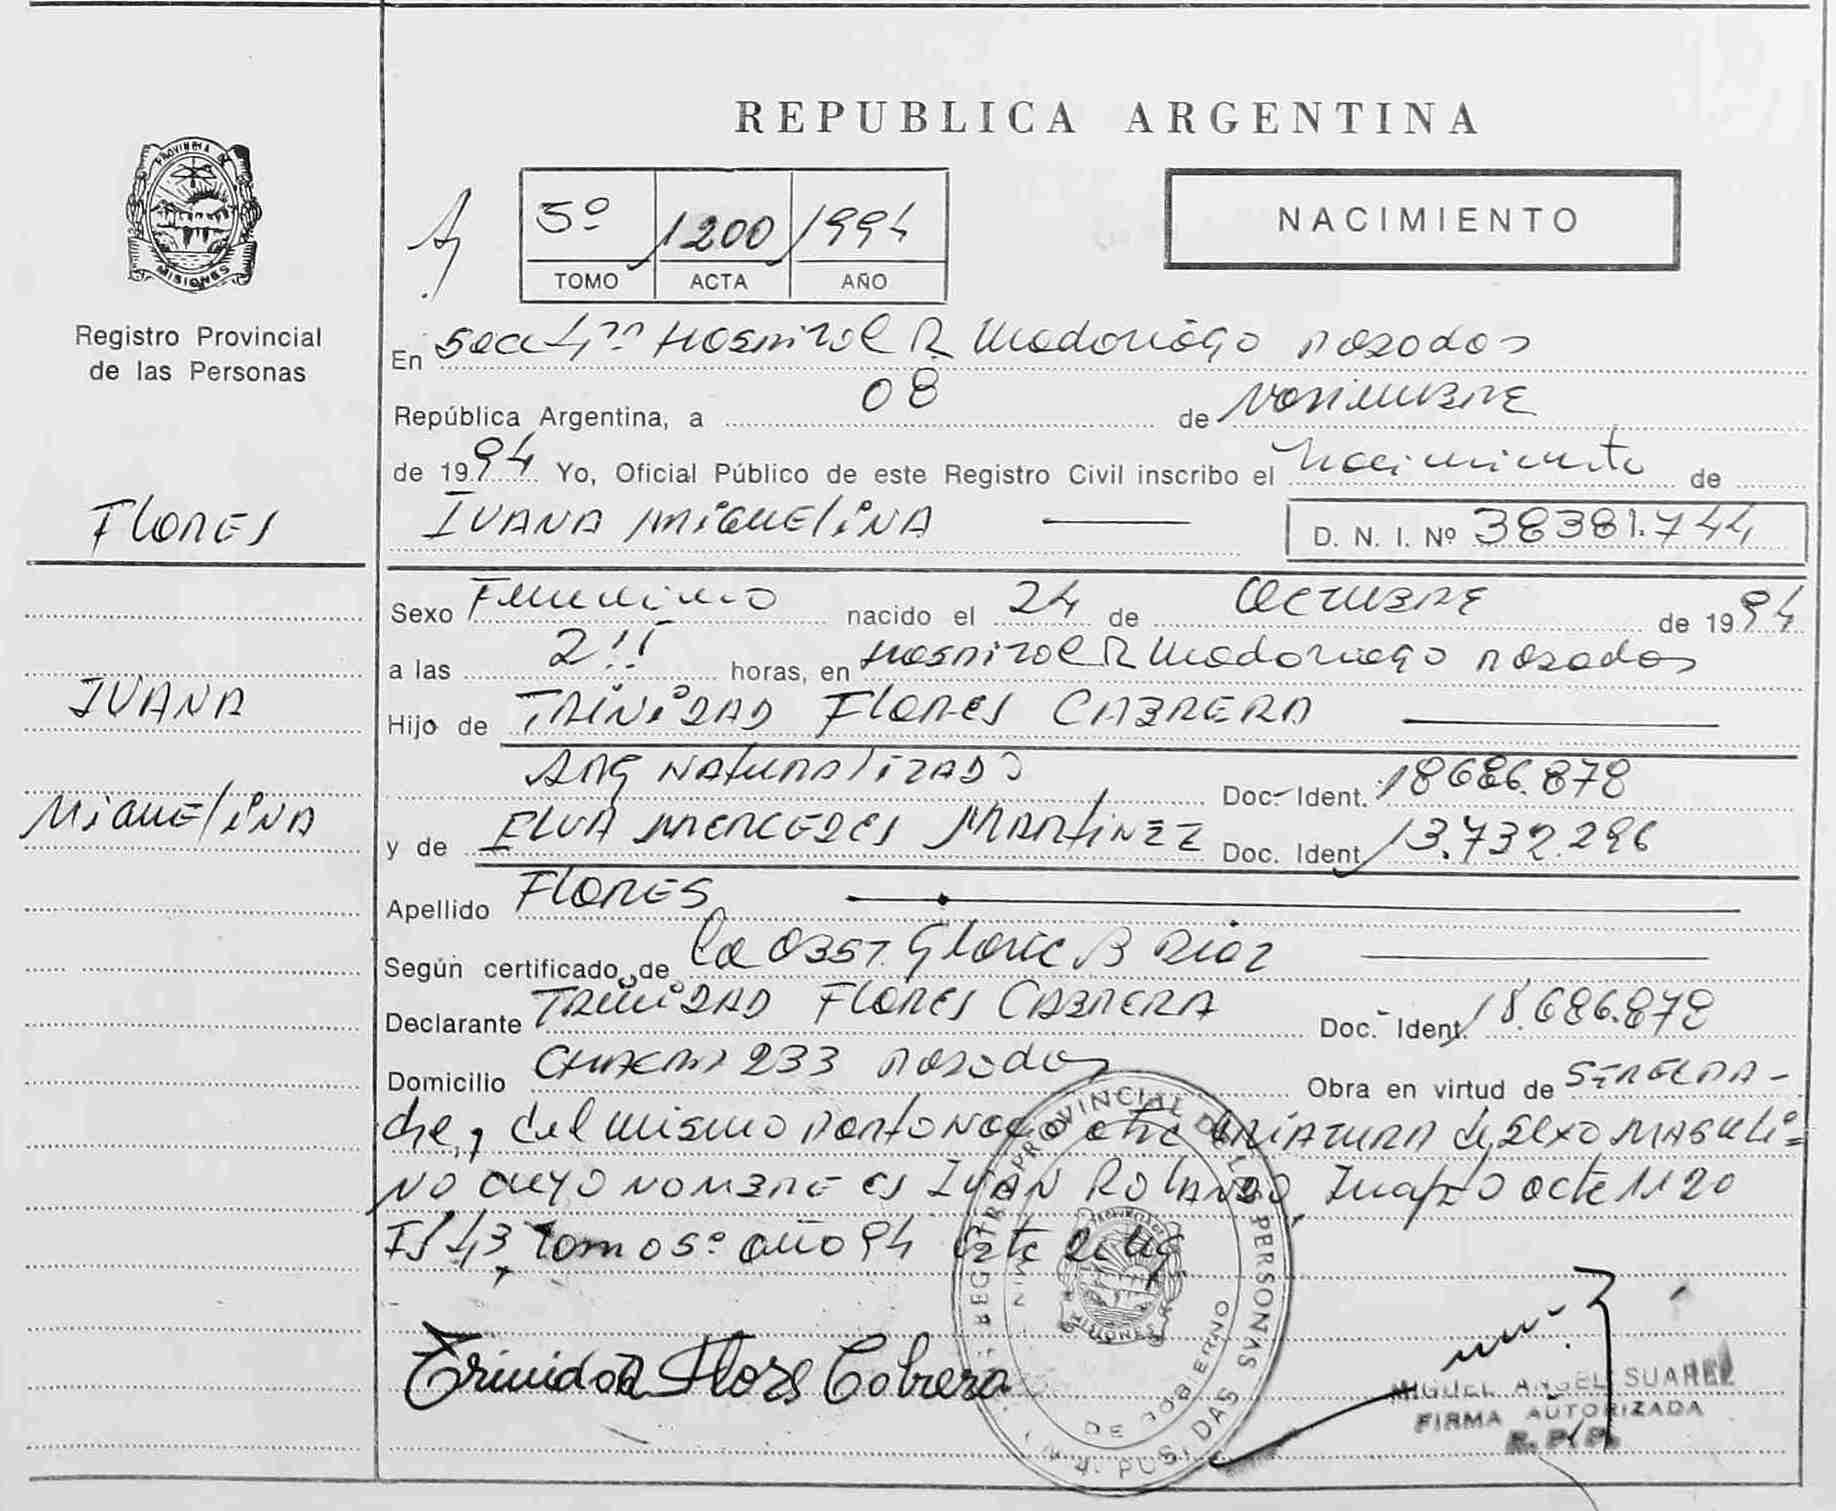 REPUBLICA ARGENTINA
PROVINCIA DE
MISIONES
Registro Provincial
de las Personas
5º 1200 1994
TOMO ACTA AÑO
NACIMIENTO
En Secc 4ta Hospital R Madariaga Posadas
República Argentina, a 08 de Noviembre
de 1994 Yo, Oficial Público de este Registro Civil inscribo el Nacimiento de
FLORES
IVANA MIGUELINA D. N. I. Nº 38381.744
Sexo Femenino nacido el 24 de Octubre de 1994
a las horas, en Hospital R Madariaga Posadas
IVANA
Hijo de TRINIDAD FLORES CABRERA
Arg Naturalizado Doc. Ident. 18686.878
MIGUELINA
y de ELVA MERCEDES MARTINEZ Doc. Ident. 13.732.296
Apellido FLORES
Según certificado de la Obst. Gloria B Diaz
Declarante TRINIDAD FLORES CABRERA Doc. Ident. 18.686.878
Domicilio 233 Posadas Obra en virtud de
del mismo parto nacio otra CRIATURA de sexo MASCULI=
NO CUYO NOMBRE es IVAN ROLANDO, acta 1120
Tomo 5º año 94
REGISTRO PROVINCIAL DE LAS PERSONAS
MISIONES
DE GOBIERNO
POSADAS
Trinidad Flores Cabrera
MIGUEL ANGEL SUAREZ
FIRMA AUTORIZADA
R. P. P.